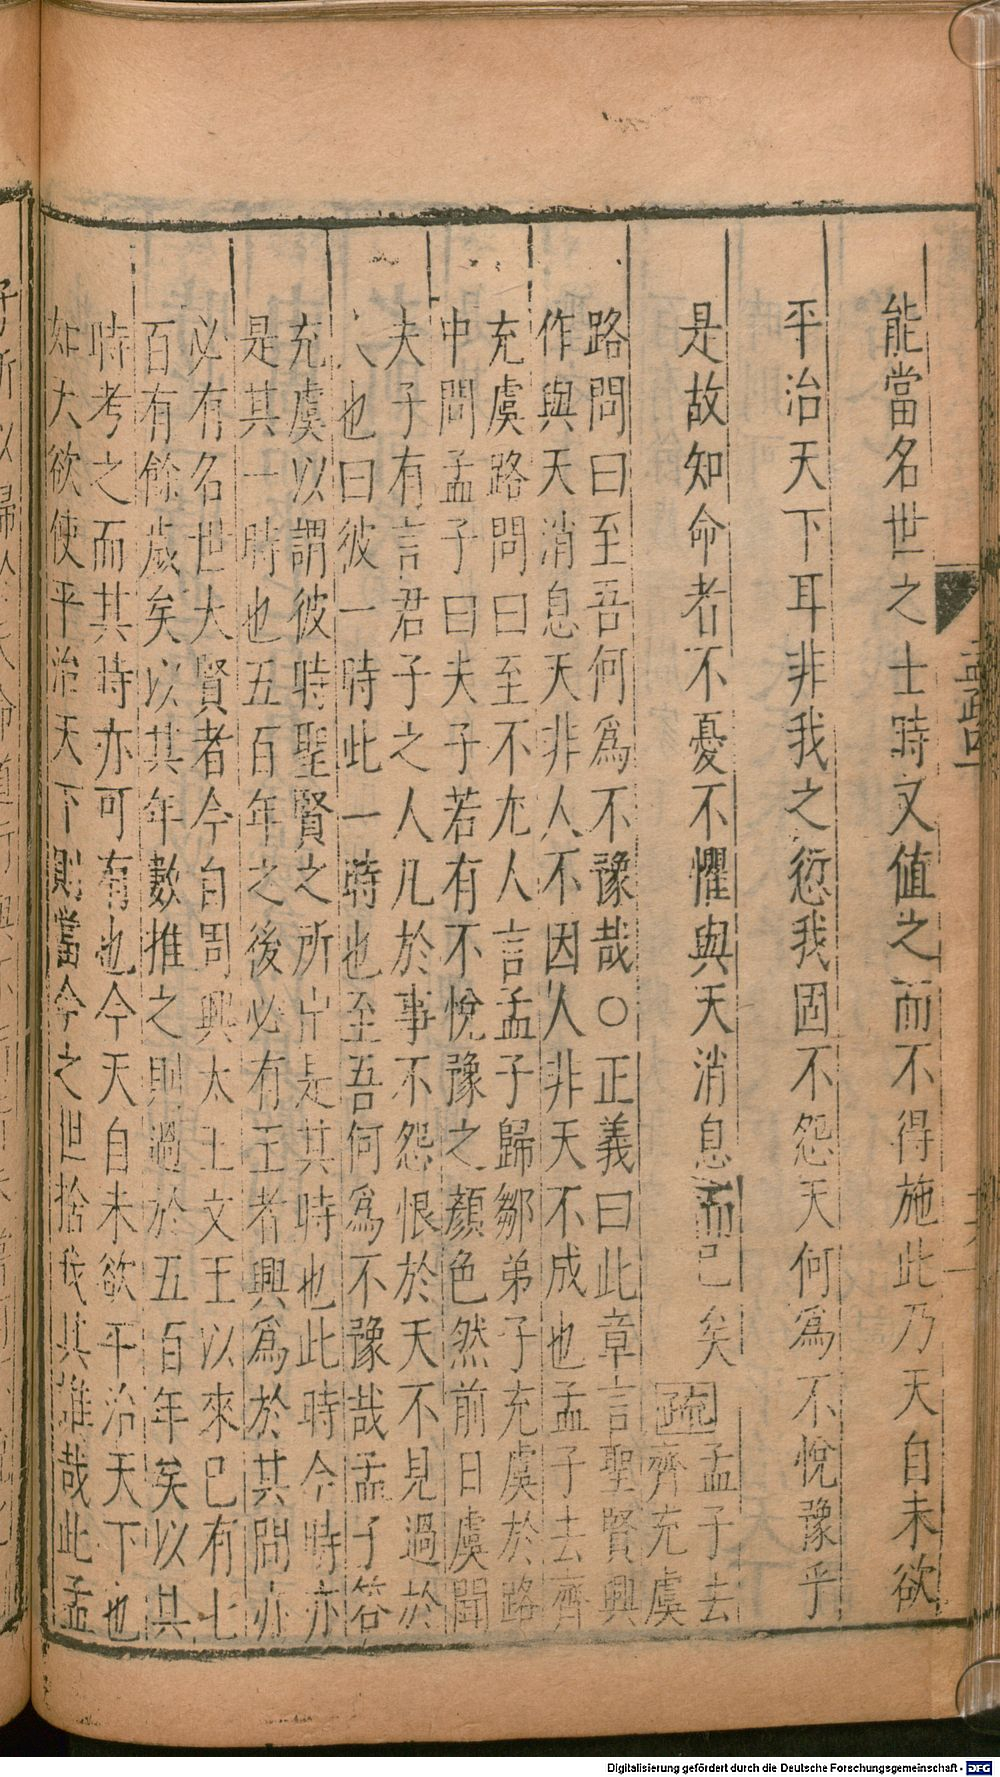 能當名世之士時又值之而不得施此乃天自未欲
平治天下耳非我之愆我固不怨天何爲不悅豫乎
是故知命者不憂不懼與天消息而已矣
疏
孟子去
齊充虞
路問曰至吾何爲不豫哉○正義曰此章言聖賢興
作與天消息天非人不因人非天不成也孟子去齊
充虞路問曰至不尤人言孟子歸鄒弟子充虞於路
中問孟子曰夫子若有不悅豫之顏色然前日虞聞
夫子有言君子之人凡於事不怨恨於天不見過於
人也曰彼一時此一時也至吾何爲不豫哉孟子答
充虞以謂彼時聖賢之所出是其時也此時今時亦
是其一時也五百年之後必有王者興爲於其間亦
必有名世大賢者今自周興太王文王以來已有七
百有餘歲矣以其年數推之則過於五百年矣以其
時考之而其時亦可有也今天自未欲平治天下也
如大欲使平治天下則當今之世捨我其誰哉此孟
Digitalisierung gefördert durch die Deutsche Forschungsgemeinschaft - DFG